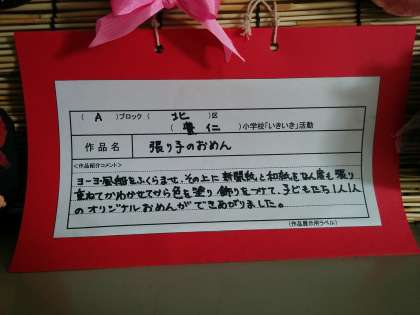 (A)ブロック(北)区
(豊仁)小学校「いきいき」活動
作品名 張り子のおめん
《作品紹介コメント》
ヨーヨー風船をふくらませ、その上に新聞紙と和紙をなん度も張り
重ねてかわかせてから色を塗り飾りをつけて、子どもたち1人1人
のオリジナルおめんができあがりました。
(作品展示用ラベル)